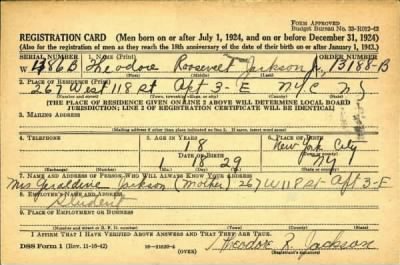 FORM APPROVED
Budget Bureau No. 33-R012-42
REGISTRATION CARD (Men born on or after July 1, 1924, and on or before December 31, 1924)
(Also for the registration of men as they reach the 18th anniversary of the date of their birth on or after January 1, 1943.)
SERIAL NUMBER 1. NAME (Print) ORDER NUMBER
W 486B Theodore Roosevelt Jackson Jr. 13188-B
(First) (Middle) (Last)
2. PLACE OF RESIDENCE (Print)
267 West 118 St Apt 3-E NYC NY
[THE PLACE OF RESIDENCE GIVEN ON LINE 2 ABOVE WILL DETERMINE LOCAL BOARD
JURISDICTION; LINE 2 OF REGISTRATION CERTIFICATE WILL BE IDENTICAL]
3. MAILING ADDRESS
4. TELEPHONE 5. AGE IN YEARS 6. PLACE OF BIRTH
18 New York City
DATE OF BIRTH
1 18 29 NY
7. NAME AND ADDRESS OF PERSON WHO WILL ALWAYS KNOW YOUR ADDRESS
Mrs Geraldine Jackson (Mother) 267 W 118 St- Apt 3-E
8. EMPLOYER'S NAME AND ADDRESS
Student
9. PLACE OF EMPLOYMENT OR BUSINESS
I AFFIRM THAT I HAVE VERIFIED ABOVE ANSWERS AND THAT THEY ARE TRUE.
DSS Form 1 (Rev. 11-16-42) (OVER) Theodore R. Jackson
(Registrant's signature)